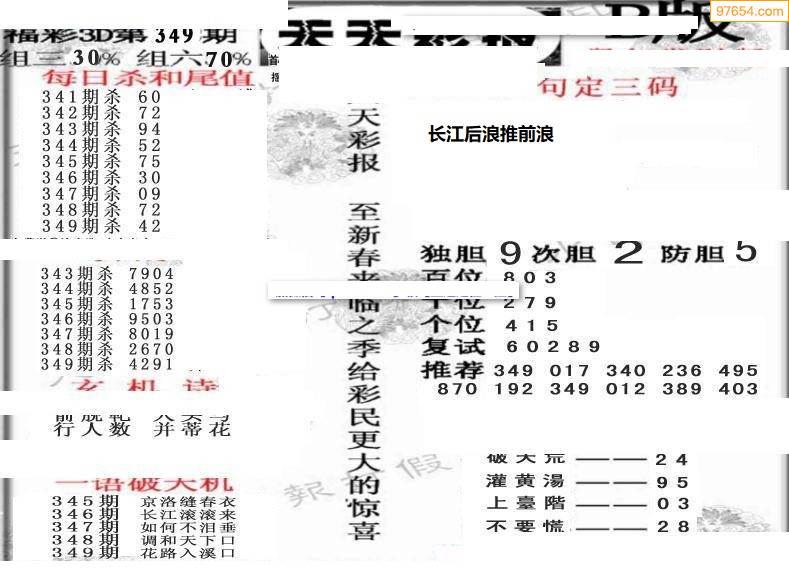 97654.com
福彩3D第349期
天天彩报
B版
组三30% 组六70%
每日杀和尾值
句定三码
341期杀 60
342期杀 72
343期杀 94
344期杀 52
345期杀 75
346期杀 30
347期杀 09
348期杀 72
349期杀 42
343期杀 7904
344期杀 4852
345期杀 1753
346期杀 9503
347期杀 8019
348期杀 2670
349期杀 4291
玄机诗
行人数 并蒂花
一语破天机
345期 京洛缝春衣
346期 长江滚滚来
347期 如何不泪垂
348期 调和天下口
349期 花路入溪口
天彩报 至新春来临之季给彩民更大的惊喜
长江后浪推前浪
独胆9次胆2防胆5
百位 803
个位 279
个位 415
复试 60289
推荐 349 017 340 236 495
870 192 349 012 389 403
破天荒——— 24
灌黄湯——— 95
上臺階——— 03
不要慌——— 28